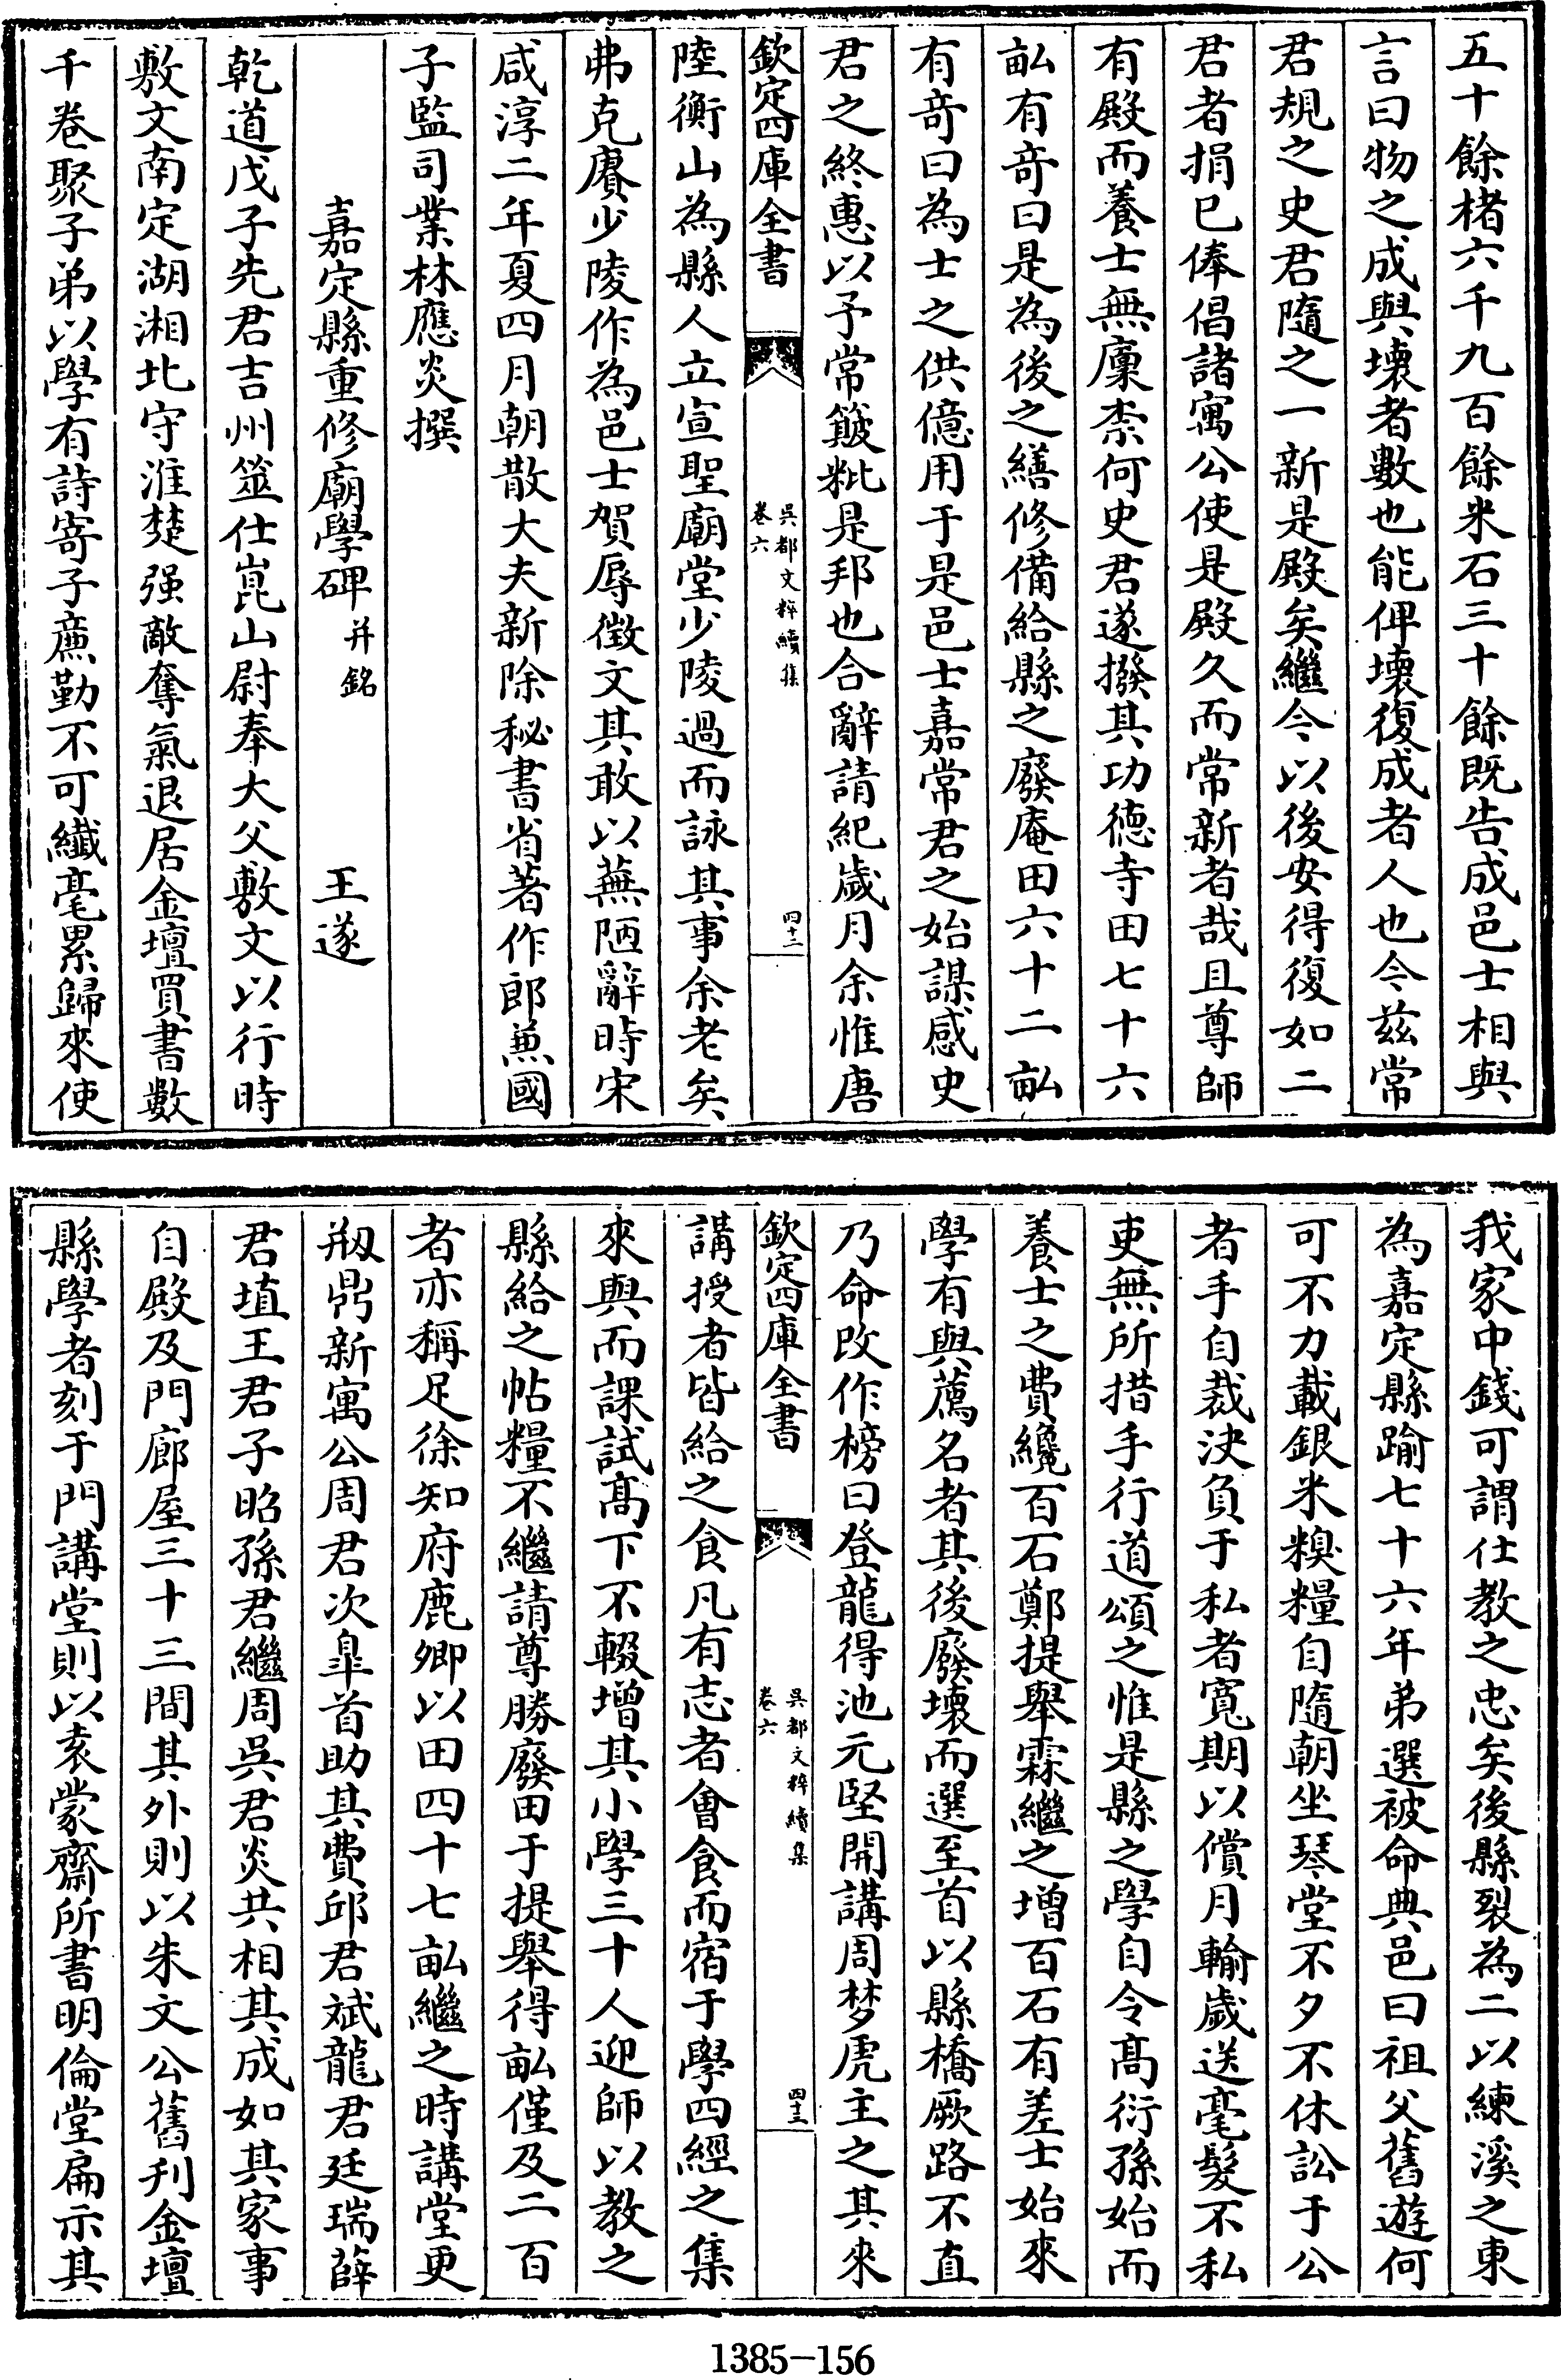 五十餘楮六千九百餘米石三十餘既告成邑士相與
言曰物之成與壞者數也能俾壞復成者人也今兹常
君規之史君隨之一新是殿矣繼今以後安得復如二
君者捐已俸倡諸寓公使是殿久而常新者哉且尊師
有殿而養士無廩柰何史君遂撥其功德寺田七十六
畆有竒曰是為後之繕修備給縣之廢庵田六十二畆
有竒曰為士之供億用于是邑士嘉常君之始謀感史
君之終惠以予常簸粃是邦也合辭請紀歲月余惟唐
欽定四庫全書
吳都文粹續集
卷六
四十二
陸衡山為縣人立宣聖廟堂少陵過而詠其事余老矣
弗克賡少陵作為邑士賀辱徵文其敢以蕪陋辭時宋
咸淳二年夏四月朝散大夫新除秘書省著作郎兼國
子監司業林應炎撰
嘉定縣重修廟學碑并銘 王遂
乾道戊子先君吉州筮仕崑山尉奉大父敷文以行時
敷文南定湖湘北守淮楚强敵奪氣退居金壇買書數
千卷聚子弟以學有詩寄子亷勤不可纎毫累歸來使
我家中錢可謂仕教之忠矣後縣裂為二以練溪之東
為嘉定縣踰七十六年弟選被命典邑曰祖父舊遊何
可不力載銀米糗糧自隨朝坐琴堂不夕不休訟于公
者手自裁決負于私者寛期以償月輸歲送毫髮不私
吏無所措手行道頌之惟是縣之學自令髙衍孫始而
養士之費纔百石鄭提舉霖繼之增百石有差士始來
學有與薦名者其後廢壞而選至首以縣橋厥路不直
乃命改作榜曰登龍得池元堅開講周梦虎主之其來
欽定四庫全書
吳都文粹續集
卷六
四十三
講授者皆給之食凡有志者會食而宿于學四經之集
來與而課試髙下不輟增其小學三十人迎師以教之
縣給之帖糧不繼請尊勝廢田于提舉得畆僅及二百
者亦稱足徐知府鹿卿以田四十七畆繼之時講堂更
剏鼎新寓公周君次臯首助其費邱君斌龍君廷瑞薛
君埴王君子昭孫君繼周吳君炎共相其成如其家事
自殿及門廊屋三十三間其外則以朱文公舊刋金壇
縣學者刻于門講堂則以袁蒙齋所書明倫堂扁示其
1385-156